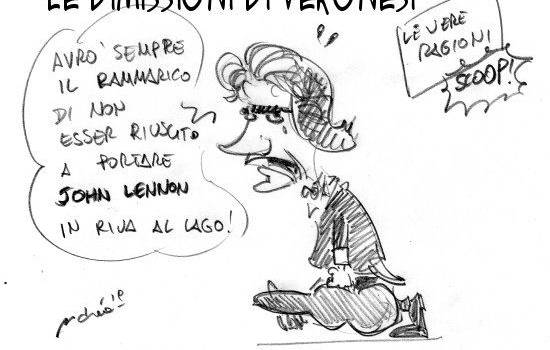 LE DIMISSIONI DI VERONESI
LE VERE
RAGIONI
SCOOP!
AVRO' SEMPRE
IL RAMMARICO
DI NON
ESSER RIUSCITO
A PORTARE
JOHN LENNON
IN RIVA AL LAGO!